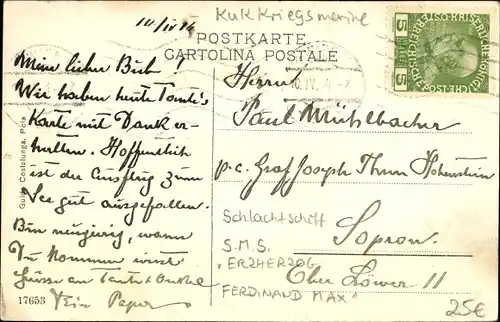 10/IV 14
KuK Kriegsmarine
POSTKARTE
CARTOLINA POSTALE
5
5
Mein lieber Bub!
Wir haben heute Tante's
Karte mit Dank er-
halten. Hoffentlich
ist der Ausflug zum
See gut ausgefallen.
Bin neugierig, wann
Du kommen wirst
Grüsse an Tante & Onkel
Dein Papa
Herrn
Paul Mühlbacher
p.c. Graf Joseph Thun Hohenstein
Sopron
Ober Löwer 11
Schlachtschiff
S.M.S.
"ERZHERZOG
FERDINAND MAX"
25€
Guido Costalunga, Pola
17653